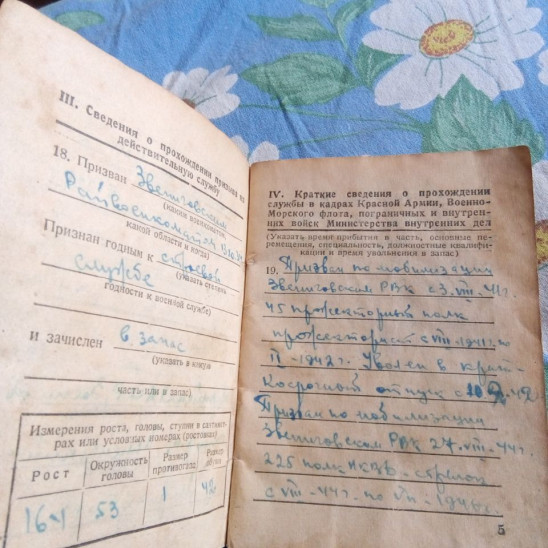 III. Сведения о прохождении призыва на
действительную службу
18. Призван Звениговским
(каким военкоматом,
Райвоенкоматом
какой области и когда)
Признан годным к строевой
(указать степень
службе
годности к военной службе)
и зачислен в запас
(указать в какую
часть или в запас)
Измерения роста, головы, ступни в сантимет-
рах или условных номерах (ростовка)
Рост
Окружность головы
Размер противогаза
Размер обуви
164
53
1
42
IV. Краткие сведения о прохождении
службы в кадрах Красной Армии, Военно-
Морского флота, пограничных и внутрен-
них войск Министерства внутренних дел
(Указать время прибытия в часть, основные пе-
ремещения, специальность, должностные квалифи-
кации и время увольнения в запас)
19. Призван по мобилизации
Звениговским РВК с 3.VIII-41г.
45 прожекторный полк
прожекторист с VIII-1941г. по
II-1942г. Уволен в крат-
косрочный отпуск с
Призван по мобилизации
Звениговским РВК 27.VIII-44г.
225 полк НКВД - стрелок
с VIII-44г. по VII-1946г.
5